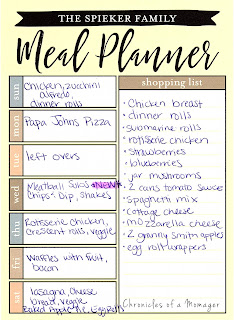 THE SPIEKER FAMILY
Meal Planner
sun
Chicken, zucchini
alfredo,
dinner rolls
mon
Papa Johns Pizza
tue
left overs
wed
Meatball Subs *NEW*
Chips + Dip, Shakes
thu
Rotisserie Chicken,
crescent rolls, veggie
fri
Waffles with fruit,
bacon
sat
lasagna, cheese
bread, veggie
Baked Apple Pie, Egg Rolls
shopping list
• Chicken breast
• dinner rolls
• submarine rolls
• rotisserie chicken
• strawberries
• blueberries
• jar mushrooms
• 2 cans tomato sauce
• Spaghetti mix
• cottage cheese
• mozzarella cheese
• 2 granny smith apples
• egg roll wrappers
Chronicles of a Momager